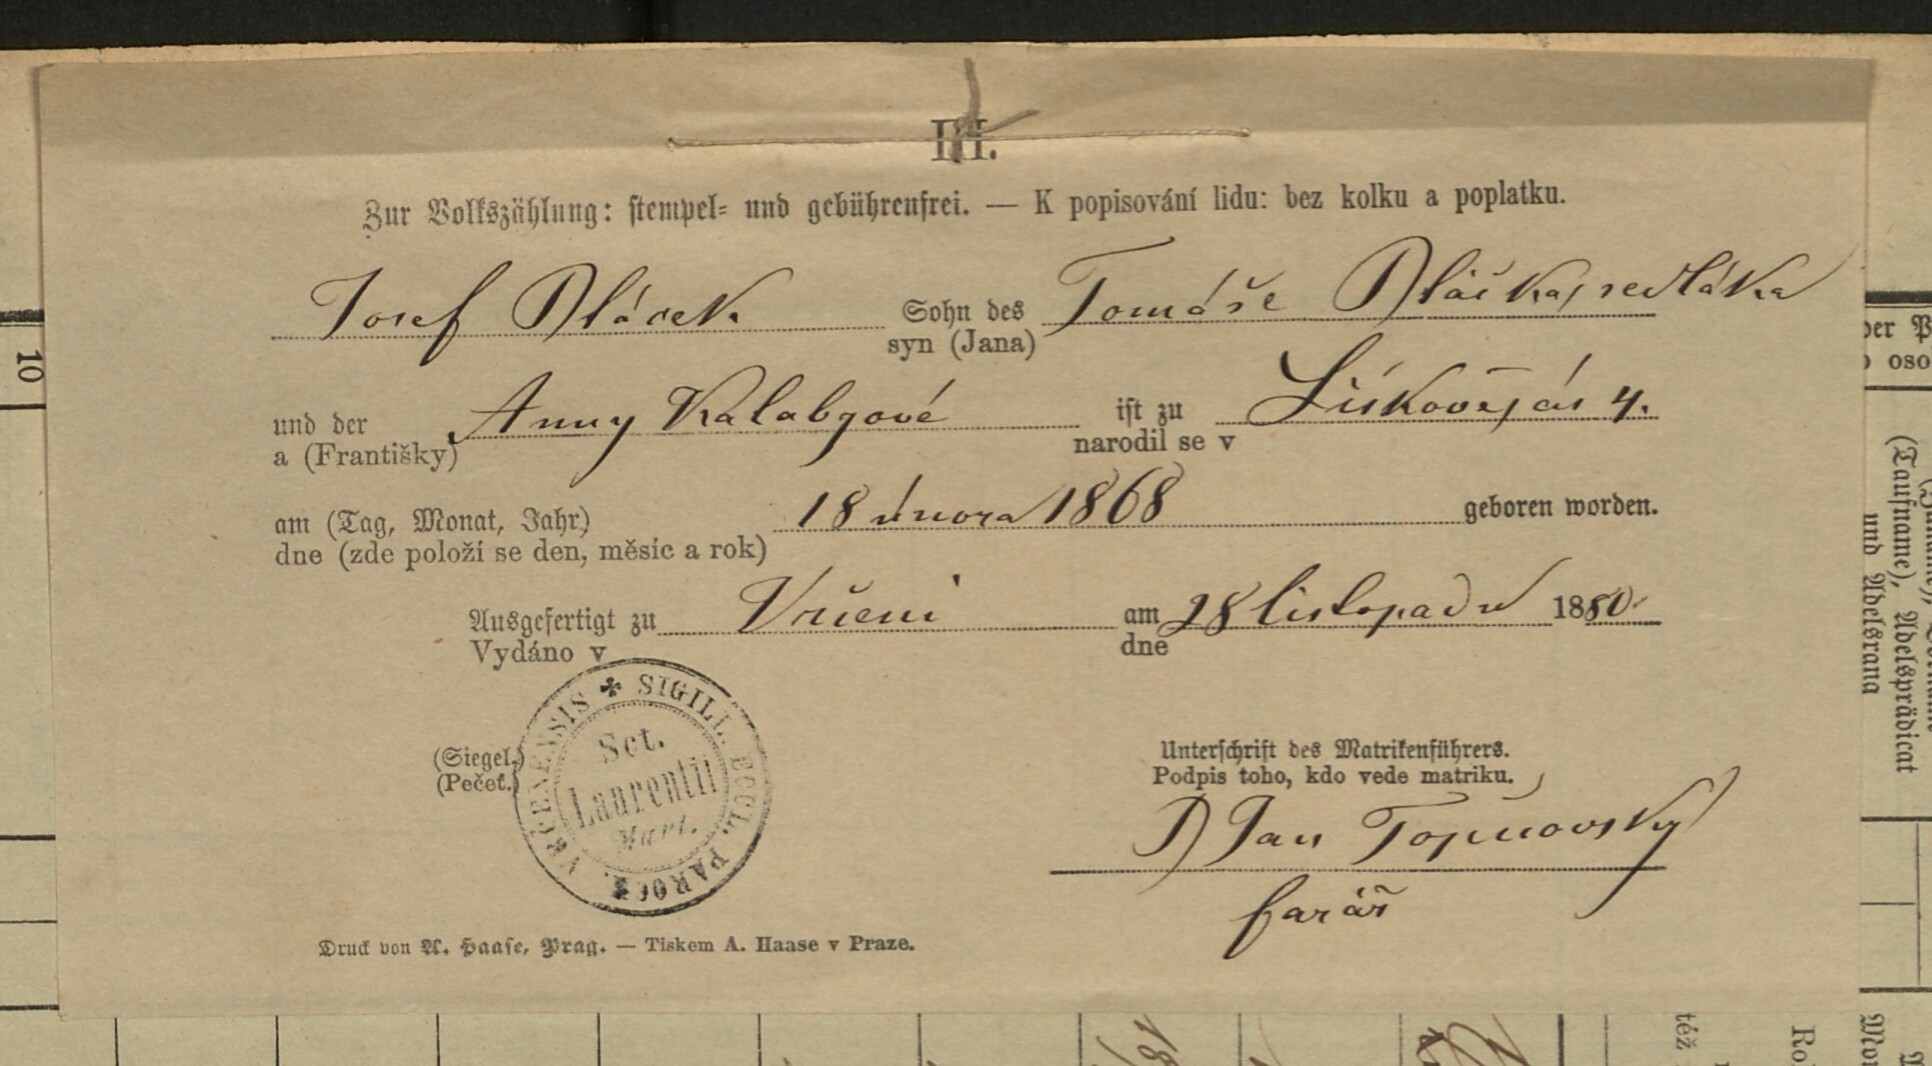 III.
Zur Volkszählung: stempel- und gebührenfrei. — K popisování lidu: bez kolku a poplatku.
Josef Ptáček Sohn des Tomáše Ptáčka, sedláka
syn (Jana)
und der Anny Kalabzové ist zu Lískově čís 4.
a (Františky) narodil se v
am (Tag, Monat, Jahr) 18 února 1868 geboren worden.
dne (zde položí se den, měsíc a rok)
Ausgefertigt zu Vrčeni am 28 listopadu 1880
Vydáno v dne
✱ SIGILL. ECCL. PAROCH. VRČENENSIS
Sct.
Laurentii
Mart.
(Siegel.)
(Pečeť.)
Unterschrift des Matrikenführers.
Podpis toho, kdo vede matriku.
P Jan
farář
Druck von A. Haase, Prag. — Tiskem A. Haase v Praze.
10
der P
oso
(Taufname), Adelsprädicat
und Adelsrang
též